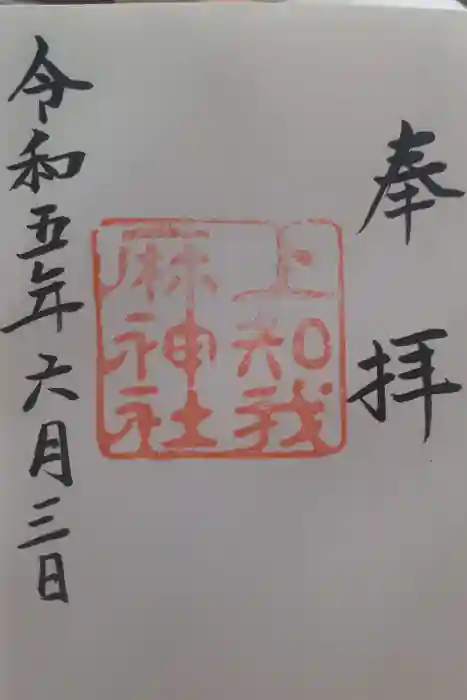 奉拝
上知我
麻神社
令和五年六月三日